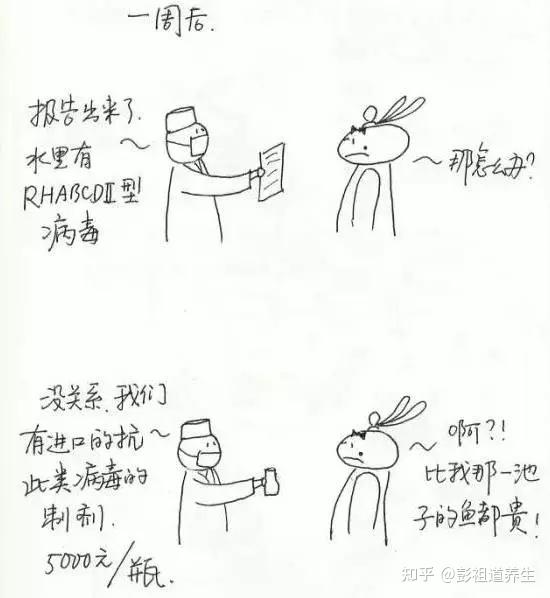 一周后.
报告出来了.
水里有
RHABCDⅡ型
病毒
那怎么办?
没关系.我们
有进口的抗
此类病毒的
制剂.
5000元/瓶.
啊?!
比我那一池
子的鱼都貴!
知乎 @彭祖道养生